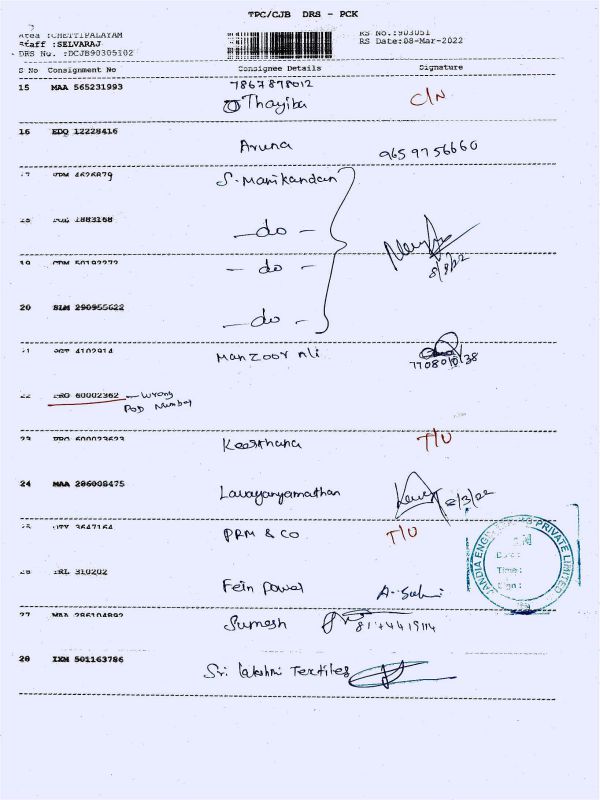 TPC/CJB DRS - PCK
Area :CHETTIPALAYAM
Staff :SELVARAJ
DRS No. :DCJB90305102
RS No.:903051
RS Date:08-Mar-2022
S No Consignment No Consignee Details Signature
15 MAA 565231993 7867878012
Thayiba C/N
16 EDQ 12228416
Aruna 9659756660
17 4626879 S. Manikandan
1883168 - do -
19 50192272 - do - 8/3/22
20 SLM 290955622
- do -
21 4102914 Manzoor Ali
22 PRO 60002362 - Wrong
POD Number
23 PRO 600023623 Keerthana T/U
24 MAA 286008475
Lavayanyamathan 8/3/22
25 3647164 PRM & CO T/U
JANDIA ENGINEERING PRIVATE LIMITED
Date :
Time :
Sign :
26 TRL 310202
Fein Power A. Subni
27 MAA 286104892 Sumesh
28 IXM 501163786
Sri Lakshmi Textiles